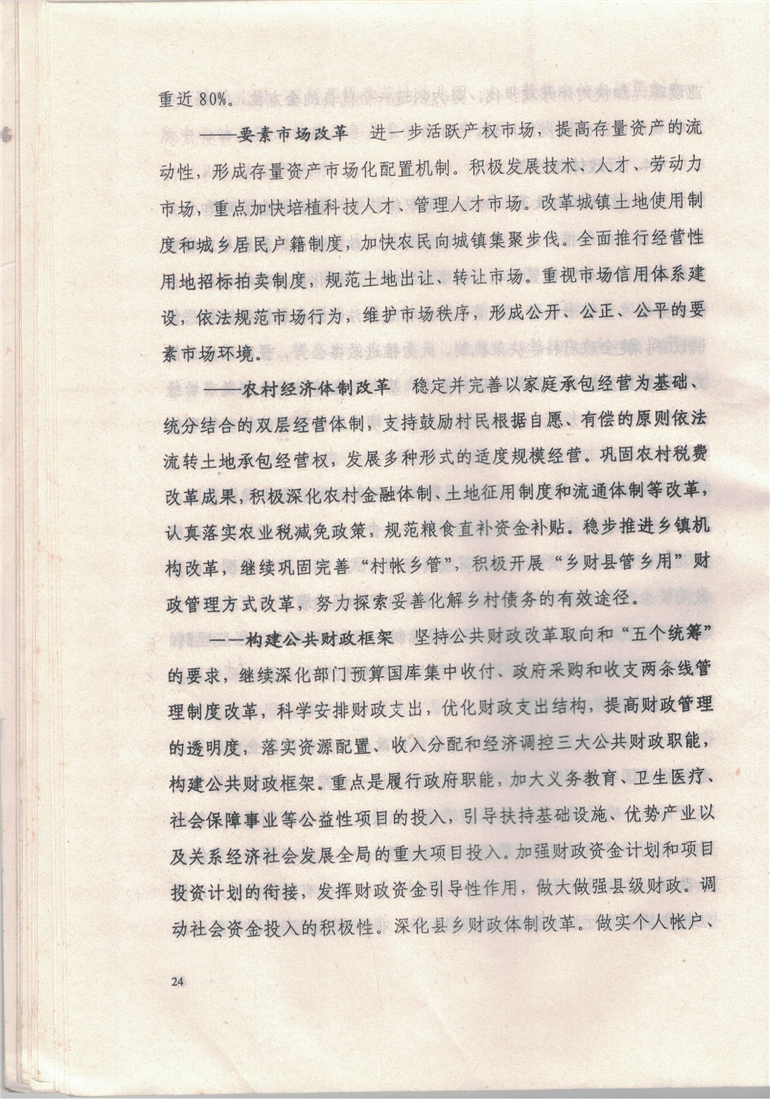 重近80%。
——要素市场改革　进一步活跃产权市场，提高存量资产的流
动性，形成存量资产市场化配置机制。积极发展技术、人才、劳动力
市场，重点加快培植科技人才、管理人才市场。改革城镇土地使用制
度和城乡居民户籍制度，加快农民向城镇集聚步伐。全面推行经营性
用地招标拍卖制度，规范土地出让、转让市场。重视市场信用体系建
设，依法规范市场行为，维护市场秩序，形成公开、公正、公平的要
素市场环境。
——农村经济体制改革　稳定并完善以家庭承包经营为基础、
统分结合的双层经营体制，支持鼓励村民根据自愿、有偿的原则依法
流转土地承包经营权，发展多种形式的适度规模经营。巩固农村税费
改革成果，积极深化农村金融体制、土地征用制度和流通体制等改革，
认真落实农业税减免政策，规范粮食直补资金补贴。稳步推进乡镇机
构改革，继续巩固完善“村帐乡管”，积极开展“乡财县管乡用”财
政管理方式改革，努力探索妥善化解乡村债务的有效途径。
——构建公共财政框架　坚持公共财政改革取向和“五个统筹”
的要求，继续深化部门预算国库集中收付、政府采购和收支两条线管
理制度改革，科学安排财政支出，优化财政支出结构，提高财政管理
的透明度，落实资源配置、收入分配和经济调控三大公共财政职能，
构建公共财政框架。重点是履行政府职能，加大义务教育、卫生医疗、
社会保障事业等公益性项目的投入，引导扶持基础设施、优势产业以
及关系经济社会发展全局的重大项目投入。加强财政资金计划和项目
投资计划的衔接，发挥财政资金引导性作用，做大做强县级财政。调
动社会资金投入的积极性。深化县乡财政体制改革。做实个人帐户、
24